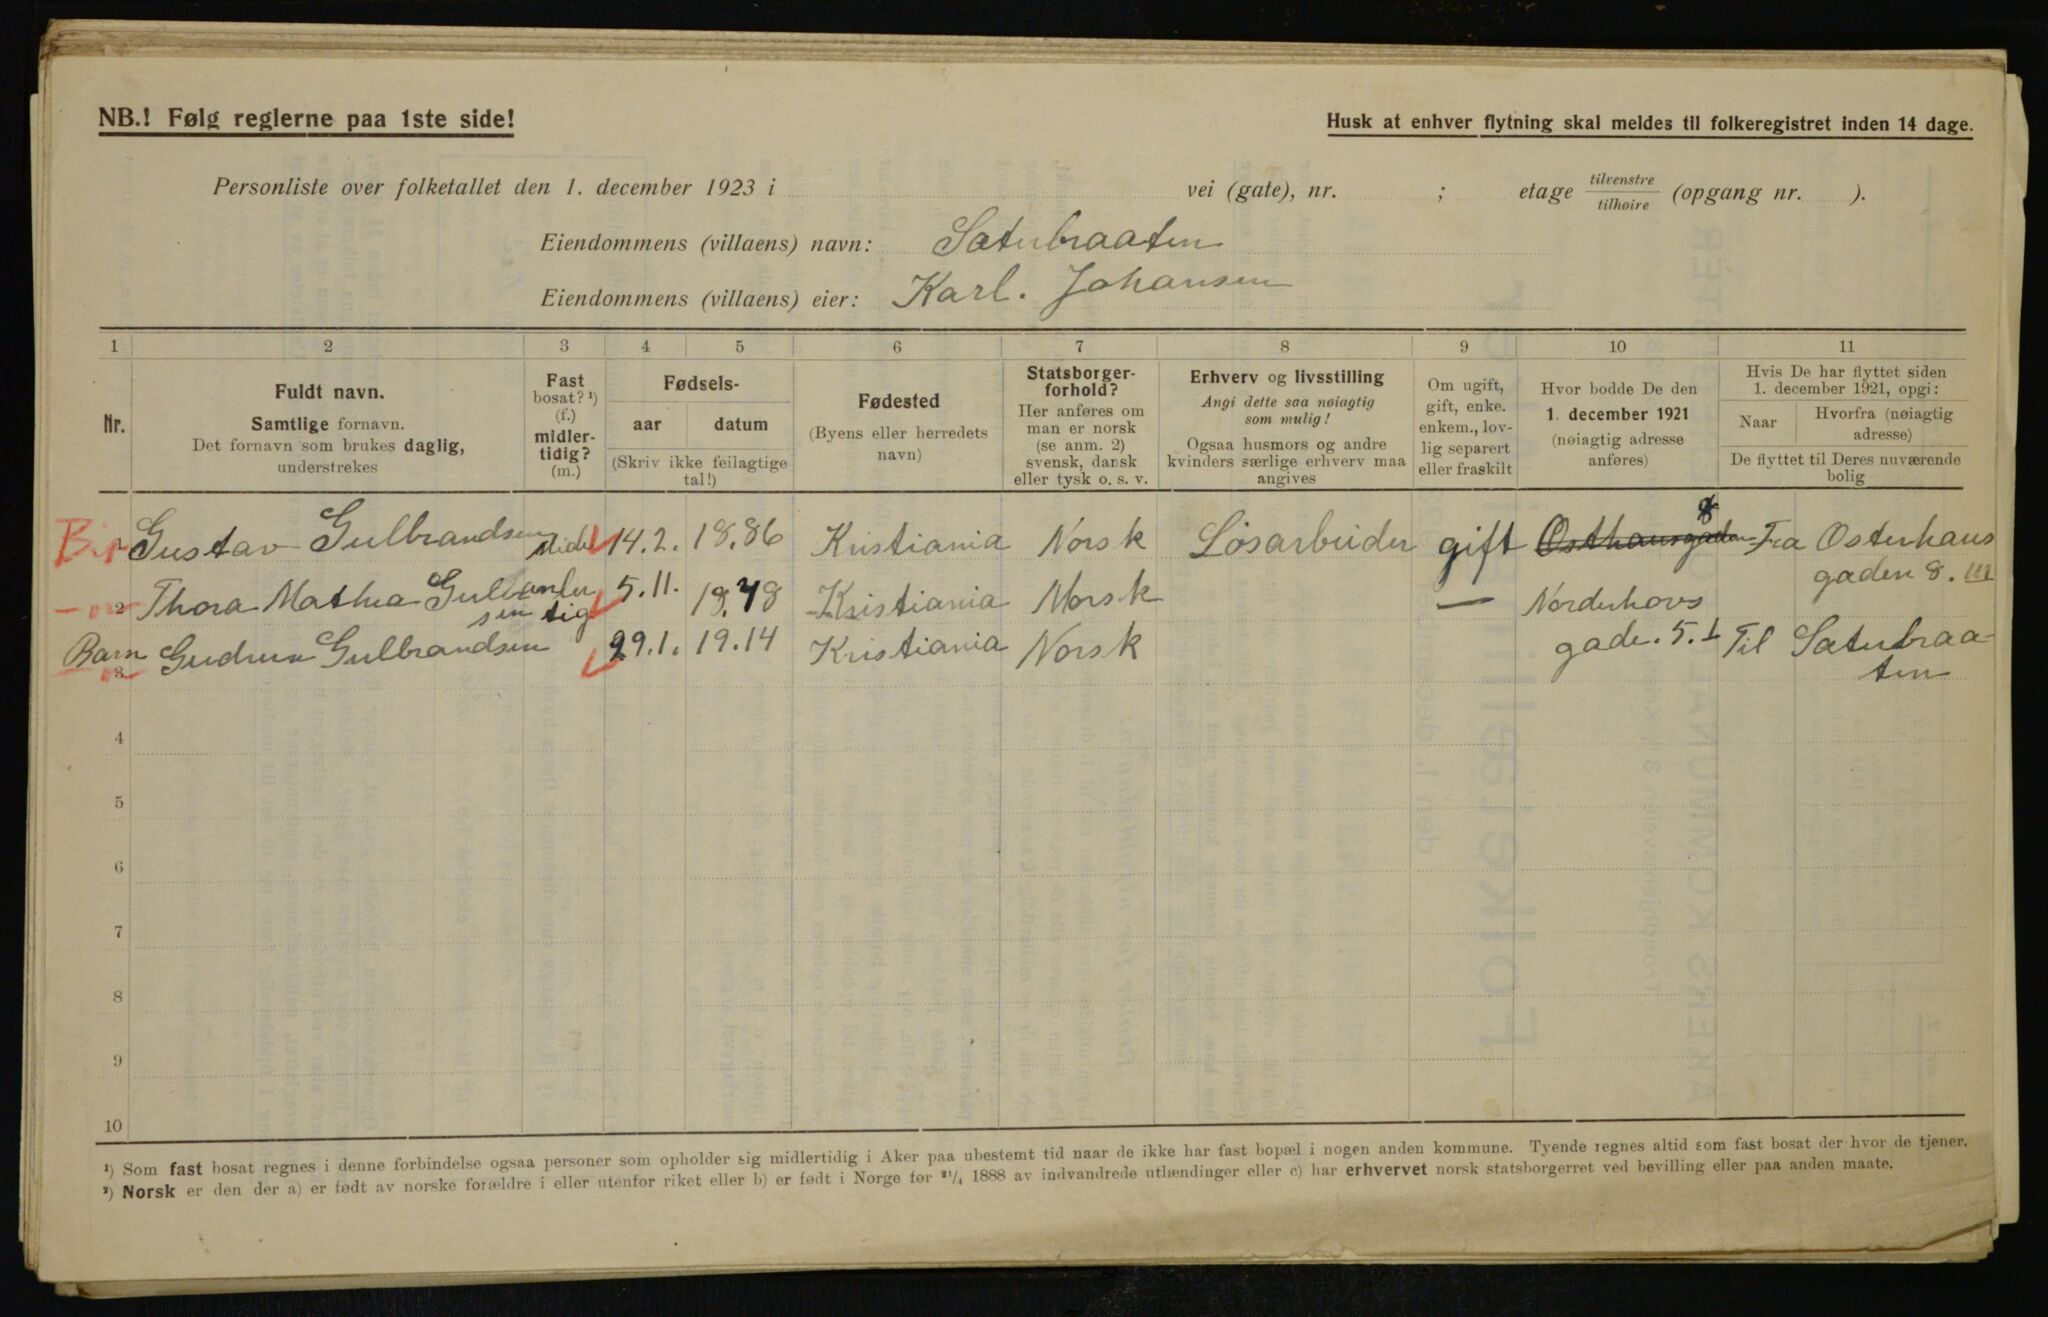 NB.! Følg reglerne paa 1ste side!
Husk at enhver flytning skal meldes til folkeregistret inden 14 dage.
Personliste over folketallet den 1. december 1923 i vei (gate), nr. ; etage tilvenstre/tilhøire (opgang nr. ).
Eiendommens (villaens) navn: Sæterbraaten
Eiendommens (villaens) eier: Karl. Johansen
1 2 3 4 5 6 7 8 9 10 11
Nr.
Fuldt navn.
Samtlige fornavn.
Det fornavn som brukes daglig,
understrekes
Fast
bosat? ¹)
(f.)
midler-
tidig?
(m.)
Fødsels-
aar datum
(Skriv ikke feilagtige
tal!)
Fødested
(Byens eller herredets
navn)
Statsborger-
forhold?
Her anføres om
man er norsk
(se anm. 2)
svensk, dansk
eller tysk o. s. v.
Erhverv og livsstilling
Angi dette saa nøiagtig
som mulig!
Ogsaa husmors og andre
kvinders særlige erhverv maa
angives
Om ugift,
gift, enke.
enkem., lov-
lig separert
eller fraskilt
Hvor bodde De den
1. december 1921
(nøiagtig adresse
anføres)
Hvis De har flyttet siden
1. december 1921, opgi:
Naar Hvorfra (nøiagtig
adresse)
De flyttet til Deres nuværende
bolig
Gustav Gulbrandsen 14.2. 18.86 Kristiania Norsk Løsarbeider gift Osthausgaden 8 Fra Osterhaus
gaden 8. III
2 Thora Mathea Gulbrand
sen tig 5.11. Kristiania Norsk — Norderhovs
gade. 5. I Til Sæterbraa-
ten
Barn 3 Gudrun Gulbrandsen 29.1. 19.14 Kristiania Norsk
4
5
6
7
8
9
10
¹) Som fast bosat regnes i denne forbindelse ogsaa personer som opholder sig midlertidig i Aker paa ubestemt tid naar de ikke har fast bopæl i nogen anden kommune. Tyende regnes altid som fast bosat der hvor de tjener.
²) Norsk er den der a) er født av norske forældre i eller utenfor riket eller b) er født i Norge før ²¹/₄ 1888 av indvandrede utlændinger eller c) har erhvervet norsk statsborgerret ved bevilling eller paa anden maate.